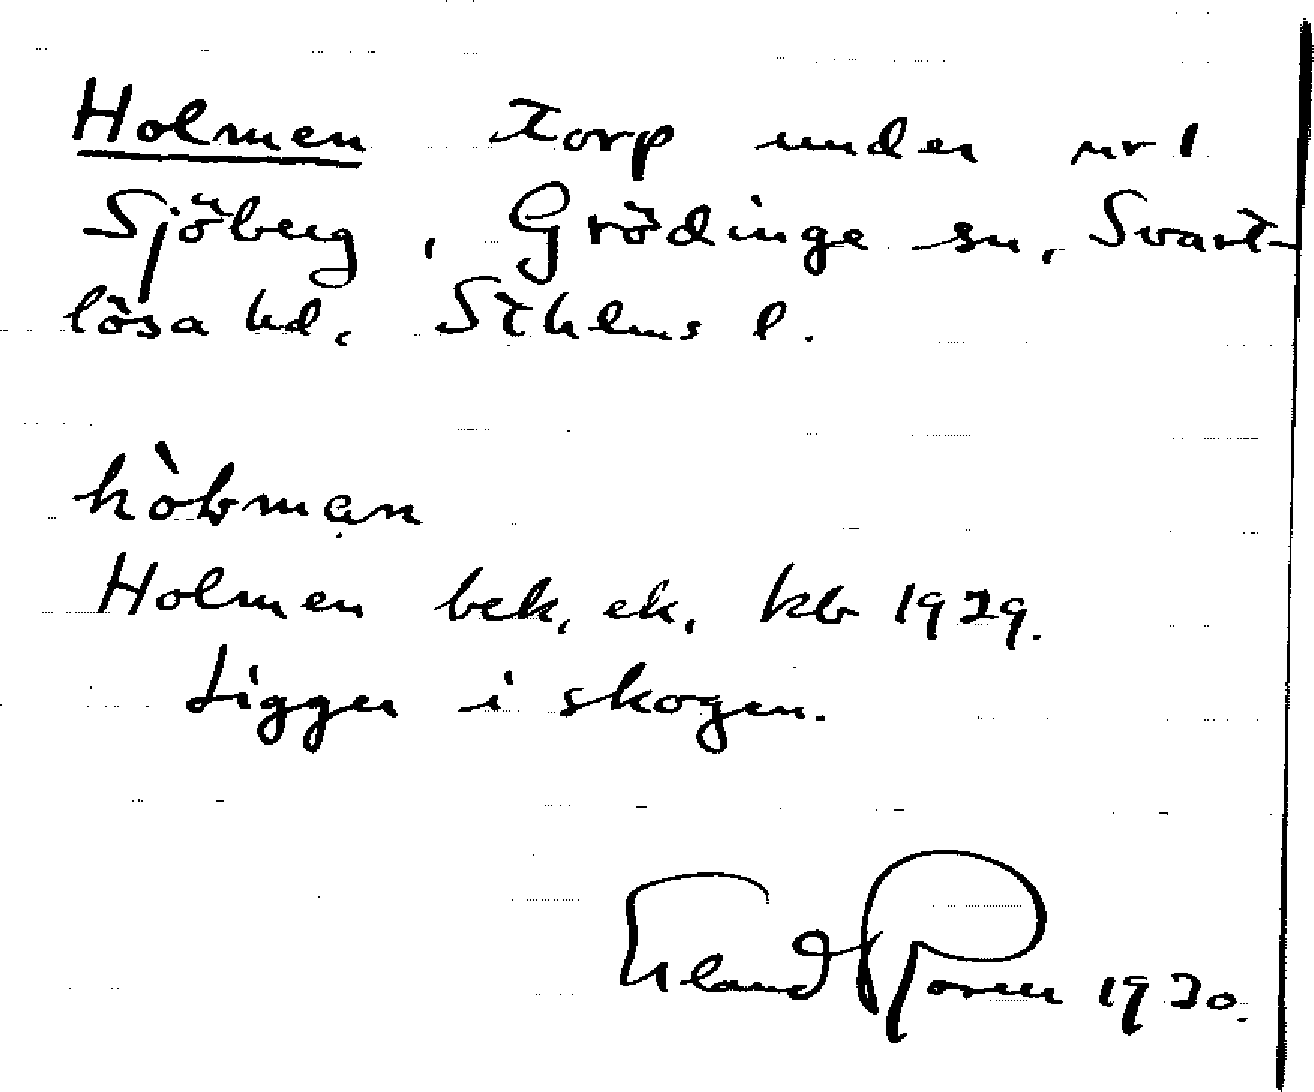 Holmen torp under nr 1
Sjöberg, Grödinge sn, Svart-
lösa hd, Sthlms l.
hòlmạn
Holmen bek, ek, kb 1929.
Ligger i skogen.
Erland Rosell 1930.